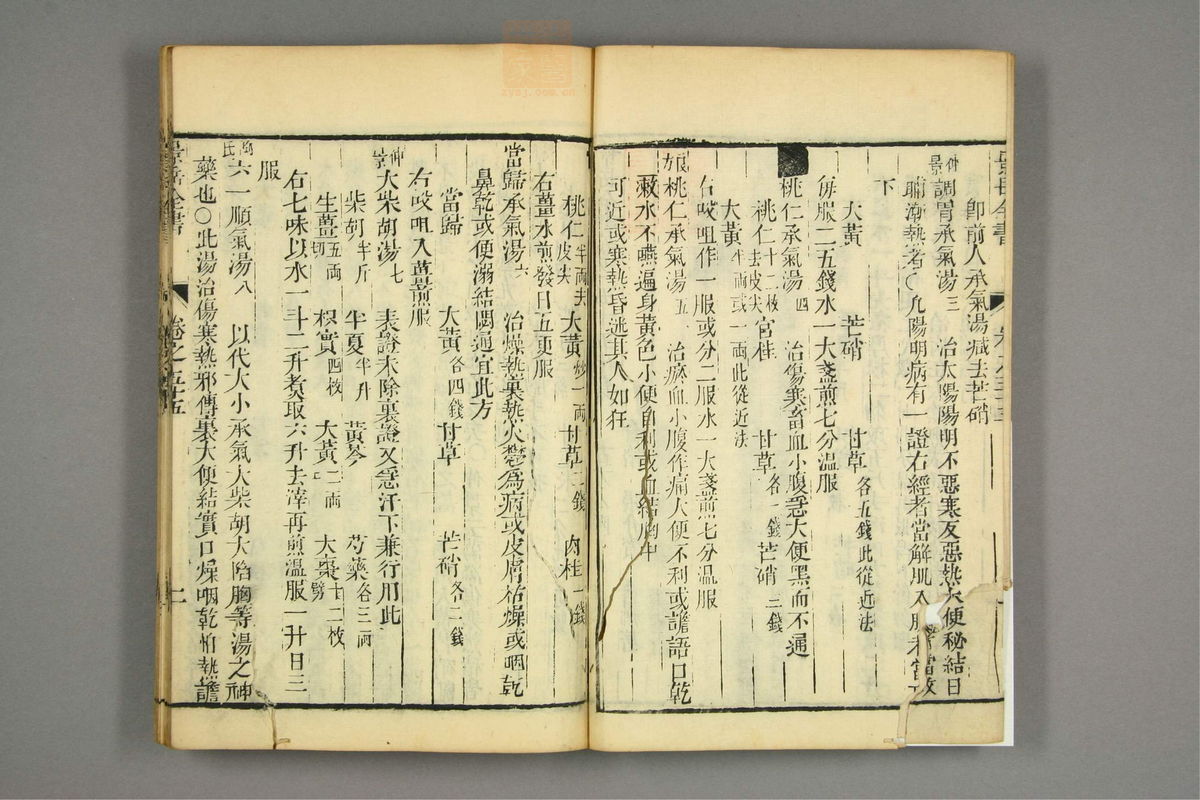 即前人承氣湯減去芒硝
仲景調胃承氣湯三 治太陽陽明不惡寒反惡熱大便秘結日
晡漸熱者○凡陽明病有一證右經者當解肌入
下
大黃 芒硝 甘草各五錢此從近法
每服二五錢水一大盞煎七分溫服
桃仁承氣湯四 治傷寒畜血小腹急大便黑而不通
桃仁十二枚去皮尖 官桂 甘草各一錢 芒硝三錢
大黃半兩或一兩此從近法
右㕮咀作一服或分二服水一大盞煎七分溫服
桃仁承氣湯五 治瘀血小腹作痛大便不利或譫語口乾
漱水不嚥遍身黃色小便自利或血結胸中
可近或寒熱昏迷其人如狂
桃仁半兩去皮尖 大黃炒一兩 甘草二錢 肉桂一錢
右薑水煎發日五更服
當歸承氣湯六 治燥熱裏熱火鬱為病或皮膚枯燥或咽乾
鼻乾或便溺結閉通宜此方
當歸 大黃各四錢 甘草 芒硝各二錢
右㕮咀入薑煎服
仲景大柴胡湯七 表證未除裏證又急汗下兼行用此
柴胡半斤 半夏半升 黃芩 芍藥各三兩
生薑五兩切 枳實四枚 大黃二兩 大棗十二枚劈
右七味以水一斗二升煮取六升去滓再煎溫服一升日三
服
陶氏六一順氣湯八 以代大小承氣大柴胡大陷胸等湯之神
藥也○此湯治傷寒熱邪傳裏大便結實口燥咽乾怕熱譫
景岳全書
卷之五十五
二
zysj.com.cn